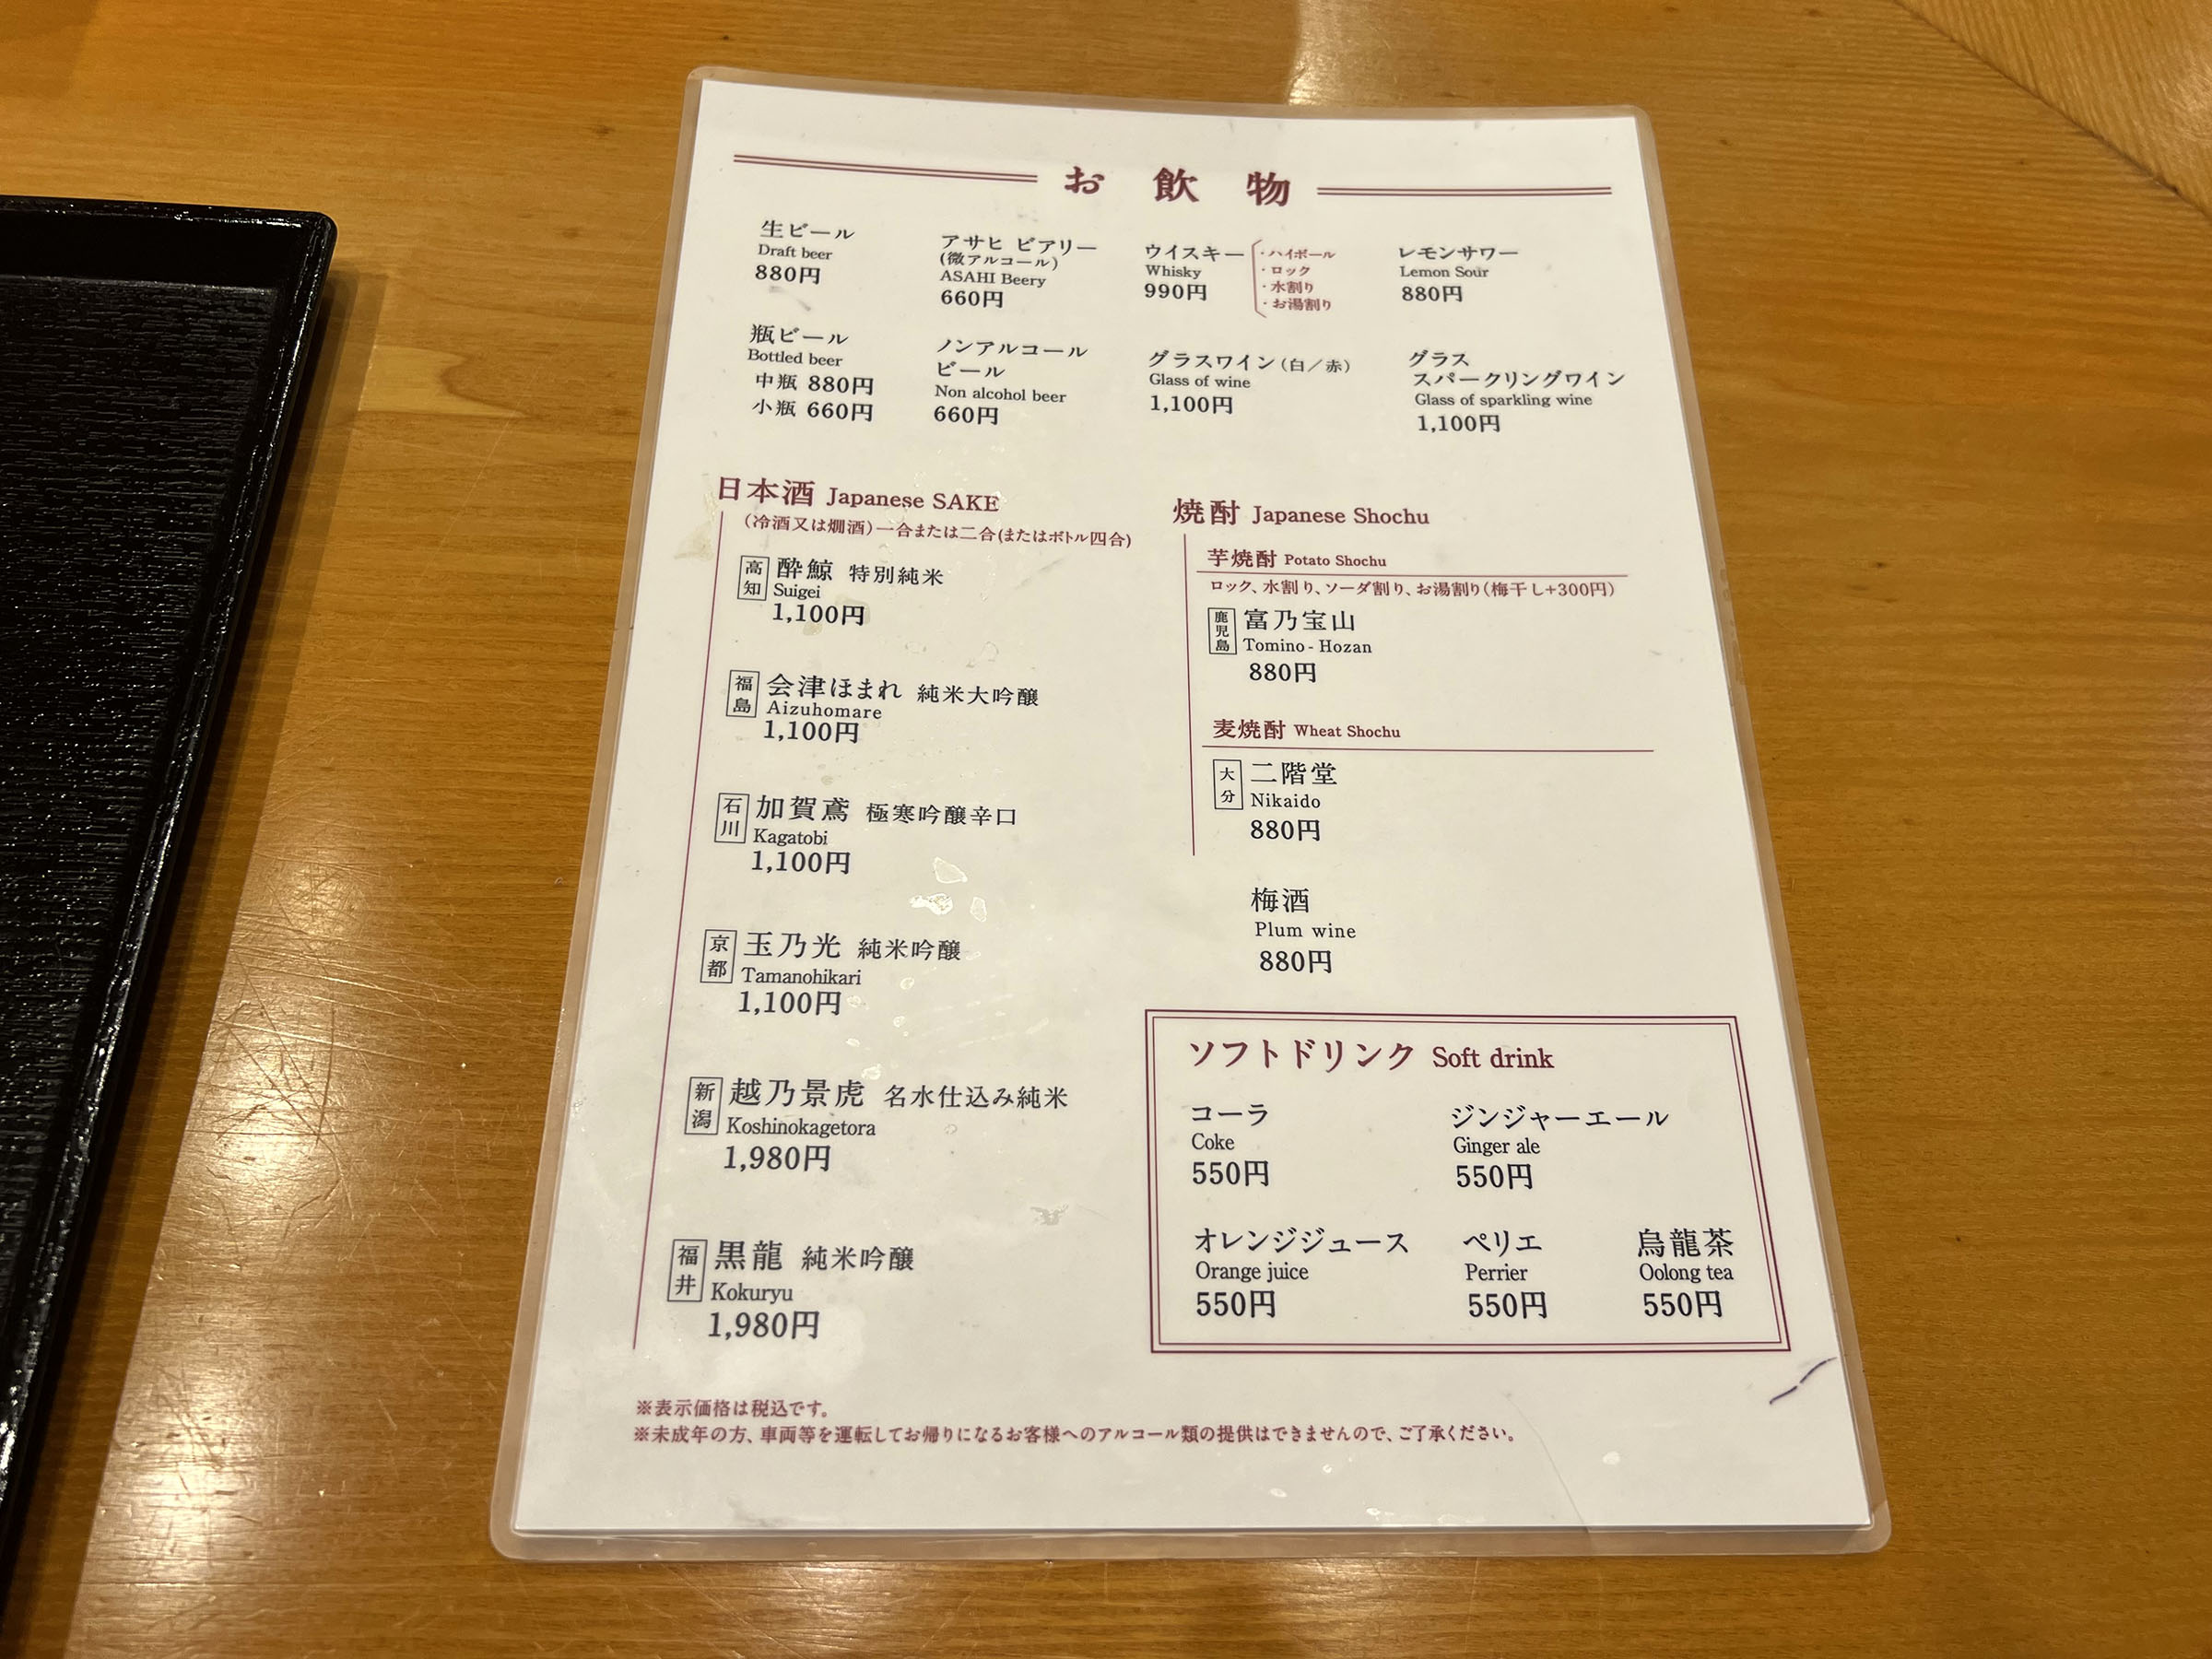 お飲物
生ビール
Draft beer
880円
アサヒ ビアリー
(微アルコール)
ASAHI Beery
660円
ウイスキー
Whisky
990円
・ハイボール
・ロック
・水割り
・お湯割り
レモンサワー
Lemon Sour
880円
瓶ビール
Bottled beer
中瓶 880円
小瓶 660円
ノンアルコール
ビール
Non alcohol beer
660円
グラスワイン(白／赤)
Glass of wine
1,100円
グラス
スパークリングワイン
Glass of sparkling wine
1,100円
日本酒 Japanese SAKE
(冷酒又は燗酒)一合または二合(またはボトル四合)
高知 酔鯨 特別純米
Suigei
1,100円
福島 会津ほまれ 純米大吟醸
Aizuhomare
1,100円
石川 加賀鳶 極寒吟醸辛口
Kagatobi
1,100円
京都 玉乃光 純米吟醸
Tamanohikari
1,100円
新潟 越乃景虎 名水仕込み純米
Koshinokagetora
1,980円
福井 黒龍 純米吟醸
Kokuryu
1,980円
焼酎 Japanese Shochu
芋焼酎 Potato Shochu
ロック、水割り、ソーダ割り、お湯割り(梅干し+300円)
鹿児島 富乃宝山
Tomino - Hozan
880円
麦焼酎 Wheat Shochu
大分 二階堂
Nikaido
880円
梅酒
Plum wine
880円
ソフトドリンク Soft drink
コーラ
Coke
550円
ジンジャーエール
Ginger ale
550円
オレンジジュース
Orange juice
550円
ペリエ
Perrier
550円
烏龍茶
Oolong tea
550円
※表示価格は税込です。
※未成年の方、車両等を運転してお帰りになるお客様へのアルコール類の提供はできませんので、ご了承ください。